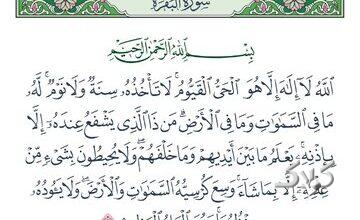 سُورَةُ البَقَرَةِ
بِسْمِ اللَّهِ الرَّحْمَٰنِ الرَّحِيمِ
اللَّهُ لَا إِلَٰهَ إِلَّا هُوَ الْحَيُّ الْقَيُّومُ ۚ لَا تَأْخُذُهُ سِنَةٌ وَلَا نَوْمٌ ۚ لَّهُ
مَا فِي السَّمَاوَاتِ وَمَا فِي الْأَرْضِ ۗ مَن ذَا الَّذِي يَشْفَعُ عِندَهُ إِلَّا
بِإِذْنِهِ ۚ يَعْلَمُ مَا بَيْنَ أَيْدِيهِمْ وَمَا خَلْفَهُمْ ۖ وَلَا يُحِيطُونَ بِشَيْءٍ مِّنْ
عِلْمِهِ إِلَّا بِمَا شَاءَ ۚ وَسِعَ كُرْسِيُّهُ السَّمَاوَاتِ وَالْأَرْضَ ۖ وَلَا يَئُودُهُ